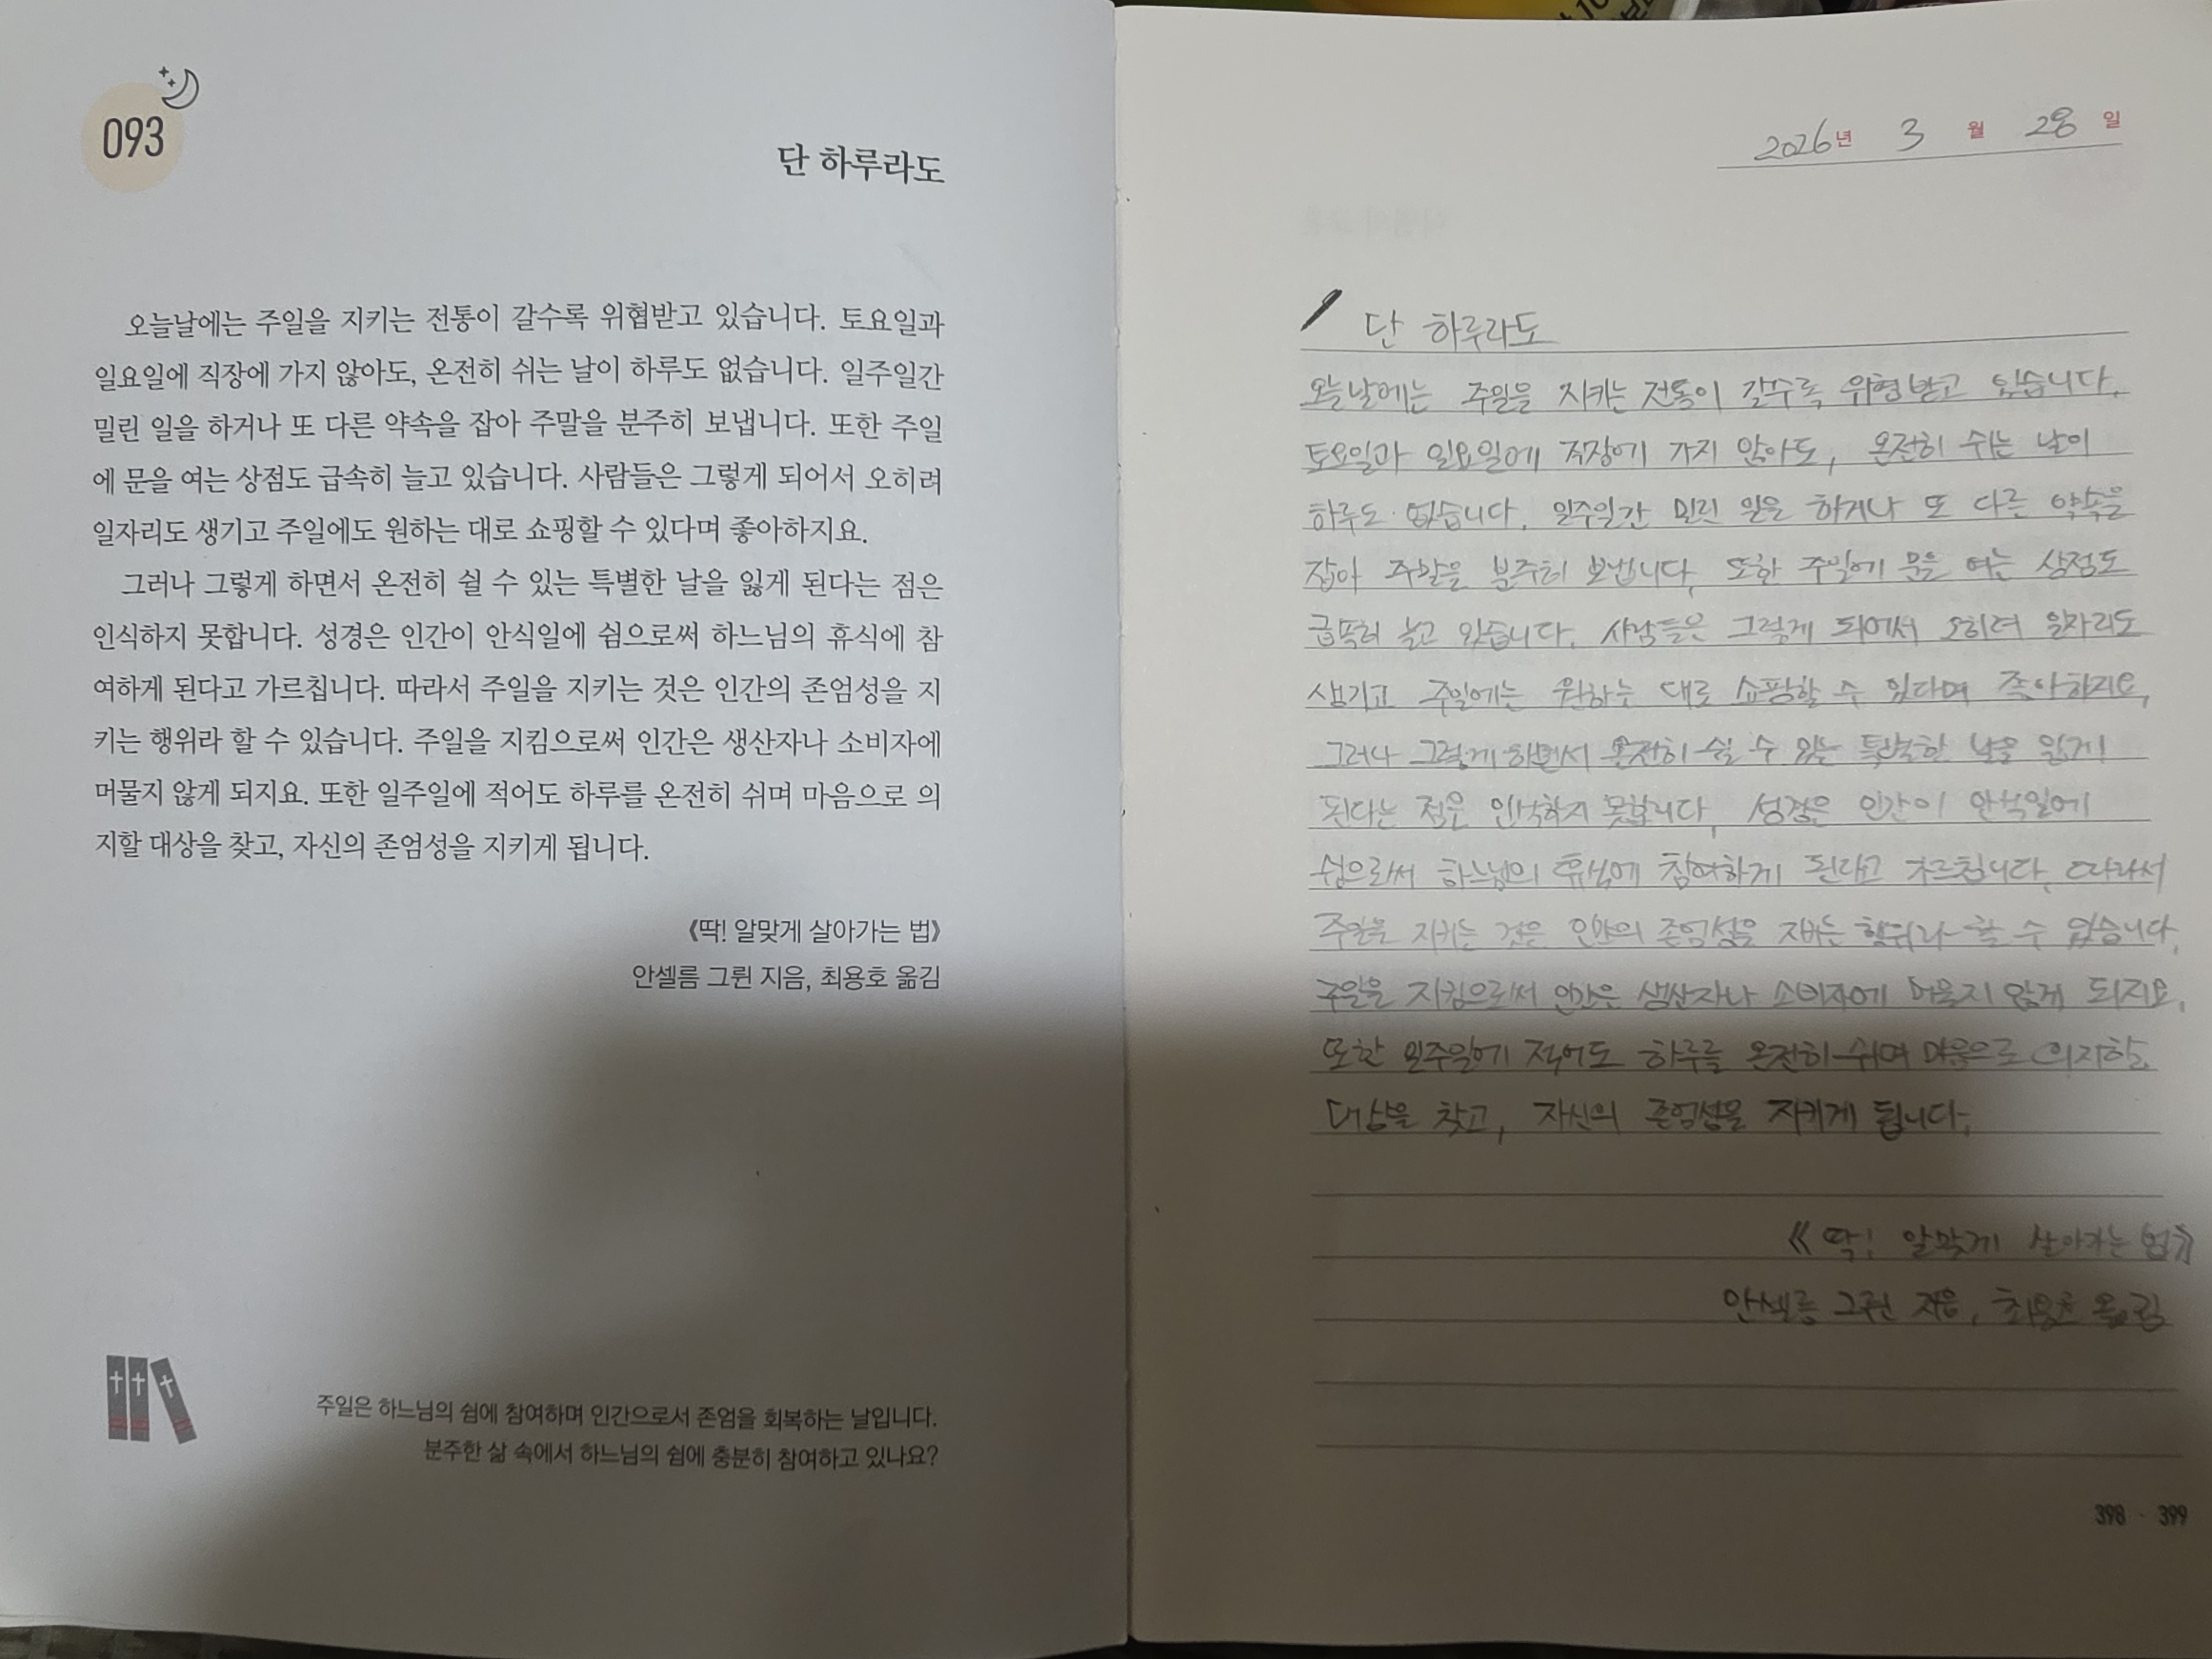 093
단 하루라도
오늘날에는 주일을 지키는 전통이 갈수록 위협받고 있습니다. 토요일과
일요일에 직장에 가지 않아도, 온전히 쉬는 날이 하루도 없습니다. 일주일간
밀린 일을 하거나 또 다른 약속을 잡아 주말을 분주히 보냅니다. 또한 주일
에 문을 여는 상점도 급속히 늘고 있습니다. 사람들은 그렇게 되어서 오히려
일자리도 생기고 주일에도 원하는 대로 쇼핑할 수 있다며 좋아하지요.
그러나 그렇게 하면서 온전히 쉴 수 있는 특별한 날을 잃게 된다는 점은
인식하지 못합니다. 성경은 인간이 안식일에 쉼으로써 하느님의 휴식에 참
여하게 된다고 가르칩니다. 따라서 주일을 지키는 것은 인간의 존엄성을 지
키는 행위라 할 수 있습니다. 주일을 지킴으로써 인간은 생산자나 소비자에
머물지 않게 되지요. 또한 일주일에 적어도 하루를 온전히 쉬며 마음으로 의
지할 대상을 찾고, 자신의 존엄성을 지키게 됩니다.
《딱! 알맞게 살아가는 법》
안셀름 그륀 지음, 최용호 옮김
주일은 하느님의 쉼에 참여하며 인간으로서 존엄을 회복하는 날입니다.
분주한 삶 속에서 하느님의 쉼에 충분히 참여하고 있나요?
2026년 3월 28일
단 하루라도
오늘날에는 주일을 지키는 전통이 갈수록 위협받고 있습니다.
토요일과 일요일에 직장에 가지 않아도, 온전히 쉬는 날이
하루도 없습니다. 일주일간 밀린 일을 하거나 또 다른 약속을
잡아 주말을 분주히 보냅니다. 또한 주일에 문을 여는 상점도
급속히 늘고 있습니다. 사람들은 그렇게 되어서 오히려 일자리도
생기고 주일에는 원하는 대로 쇼핑할 수 있다며 좋아하지요.
그러나 그렇게 하면서 온전히 쉴 수 있는 특별한 날을 잃게
된다는 점은 인식하지 못합니다. 성경은 인간이 안식일에
쉼으로써 하느님의 휴식에 참여하게 된다고 가르칩니다. 따라서
주일을 지키는 것은 인간의 존엄성을 지키는 행위라 할 수 있습니다.
주일을 지킴으로써 인간은 생산자나 소비자에 머물지 않게 되지요.
또한 일주일에 적어도 하루를 온전히 쉬며 마음으로 의지할
대상을 찾고, 자신의 존엄성을 지키게 됩니다.
《딱! 알맞게 살아가는 법》
안셀름 그륀 지음, 최용호 옮김
398 - 399